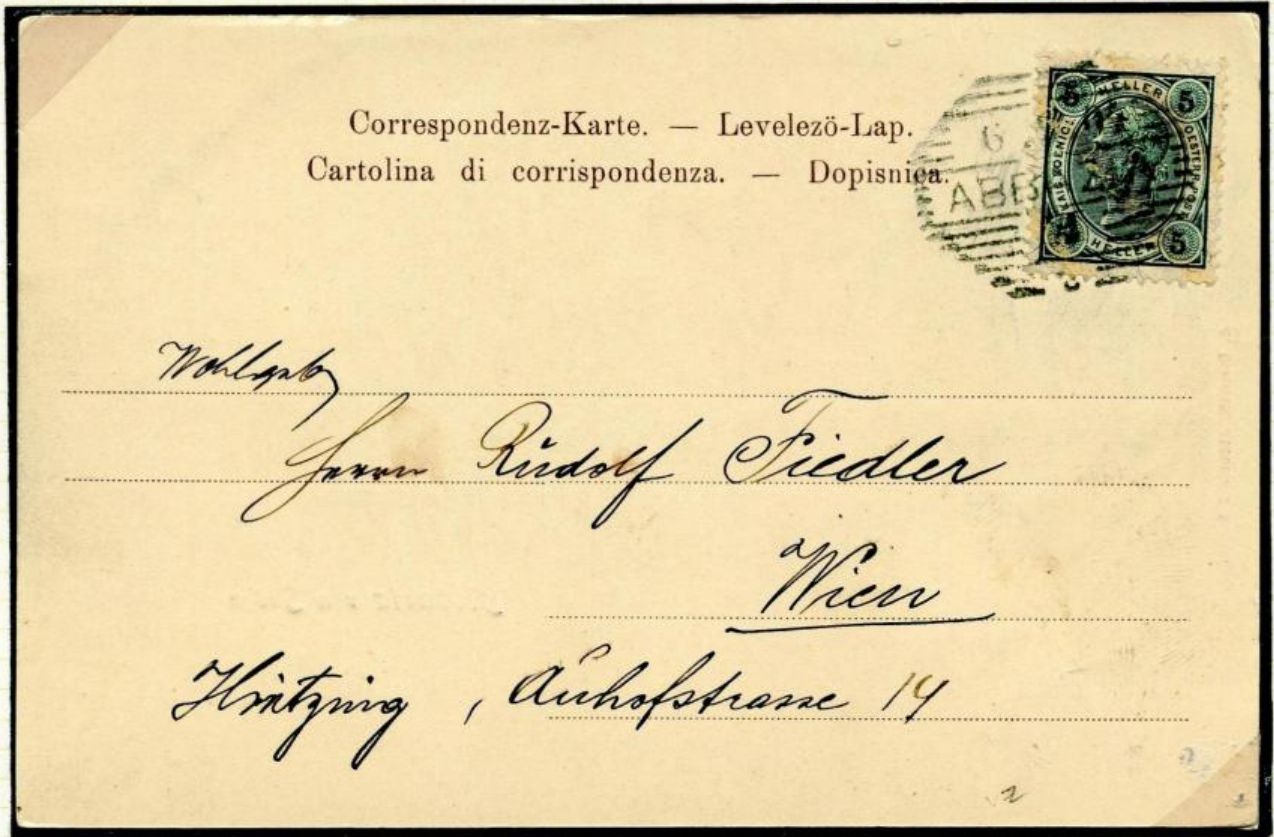 Correspondenz-Karte. — Levelezö-Lap.
Cartolina di corrispondenza. — Dopisnica.
6
ABB
5 HELLER 5
KAIS. KOENIGL. OESTERR. POST
5 HELLER 5
Wohlgeb
Herrn Rudolf Fiedler
Wien
Hietzing, Auhofstrasse 14